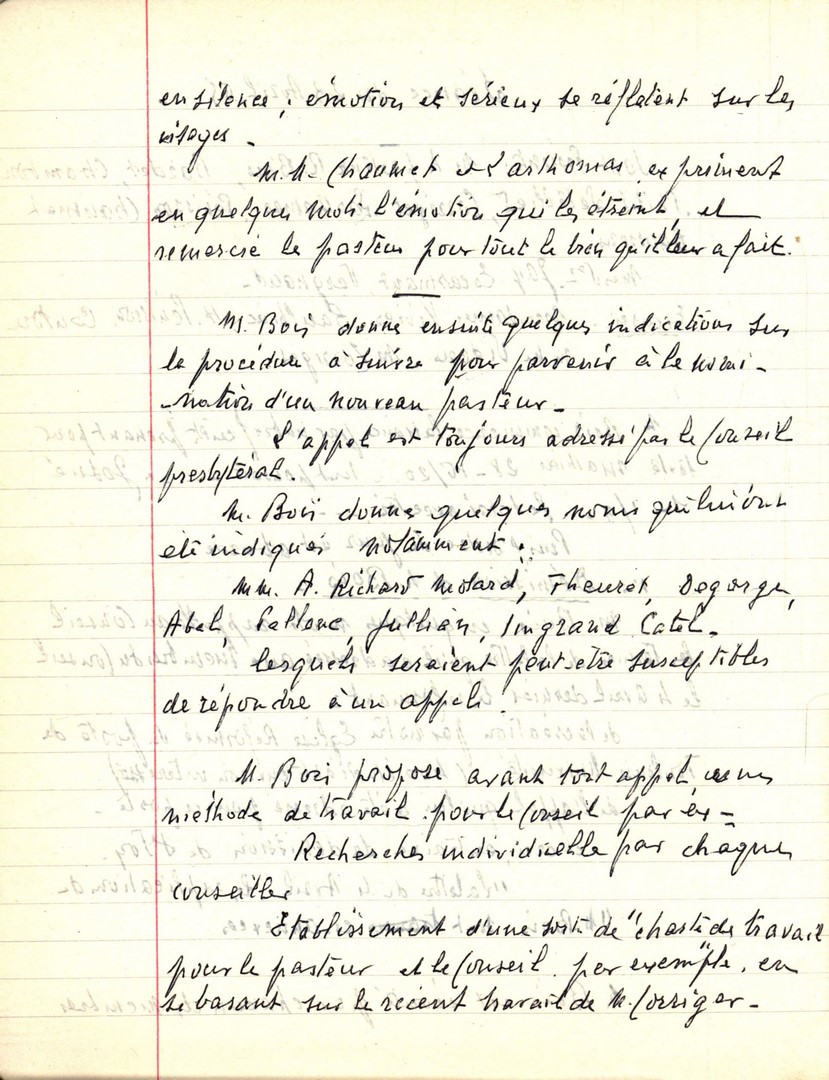 en silence ; émotion et sérieux se reflètent sur les
visages -
M.M. Chaumet et Larthomas expriment
en quelques mots l'émotion qui les étreint, et
remercie le pasteur pour tout le bien qu'il leur a fait.
M. Bois donne ensuite quelques indications sur
la procédure à suivre pour parvenir à la nomi-
-nation d'un nouveau pasteur -
L'appel est toujours adressé par le Conseil
presbytéral.
M. Bois donne quelques noms qui lui ont
été indiqués notamment :
MM. A. Richard Molard, Theuret, Degorge,
Abel, Jullian, Ingrand, Catel -
lesquels seraient peut-être susceptibles
de répondre à un appel.
M. Bois propose avant tout appel, une
méthode de travail pour le Conseil par ex -
Recherches individuelle par chaque
conseiller
Etablissement d'une sorte de "charte de travail
pour le pasteur et le Conseil, par exemple, en
se basant sur le récent travail de M.